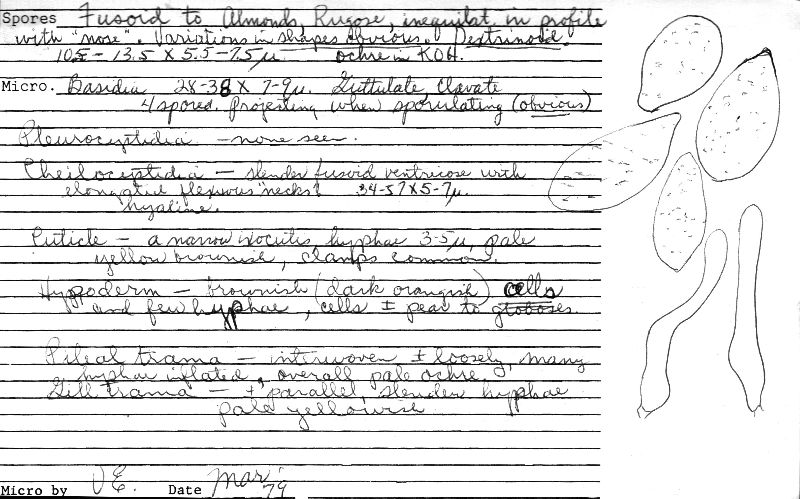 Spores Fusoid to Almond, Rugose, inequilat. in profile
with "nose". Variations in shapes obvious. Dextrinoid.
10.5 - 13.5 X 5.5 - 7.5 µ ochre in KOH.
Micro. Basidia 28-38 X 7-9µ. Guttulate, Clavate
4 spored. Projecting when sporulating (obvious)
Pleurocystidia - none seen.
Cheilocystidia - slender fusoid ventricose with
elongated flexuous "necks" 34-57 X 5-7µ.
hyaline.
Cuticle - a narrow ixocutis, hyphae 3-5µ, pale
yellow brownish, clamps common.
Hypoderm - brownish (dark orangish) cells
and few hyphae, cells ± pear to globose.
Pileal trama - interwoven ± loosely, many
hyphae inflated, overall pale ochre.
Gill trama - ± parallel, slender hyphae
pale yellowish
Micro by VE. Date Mar 79